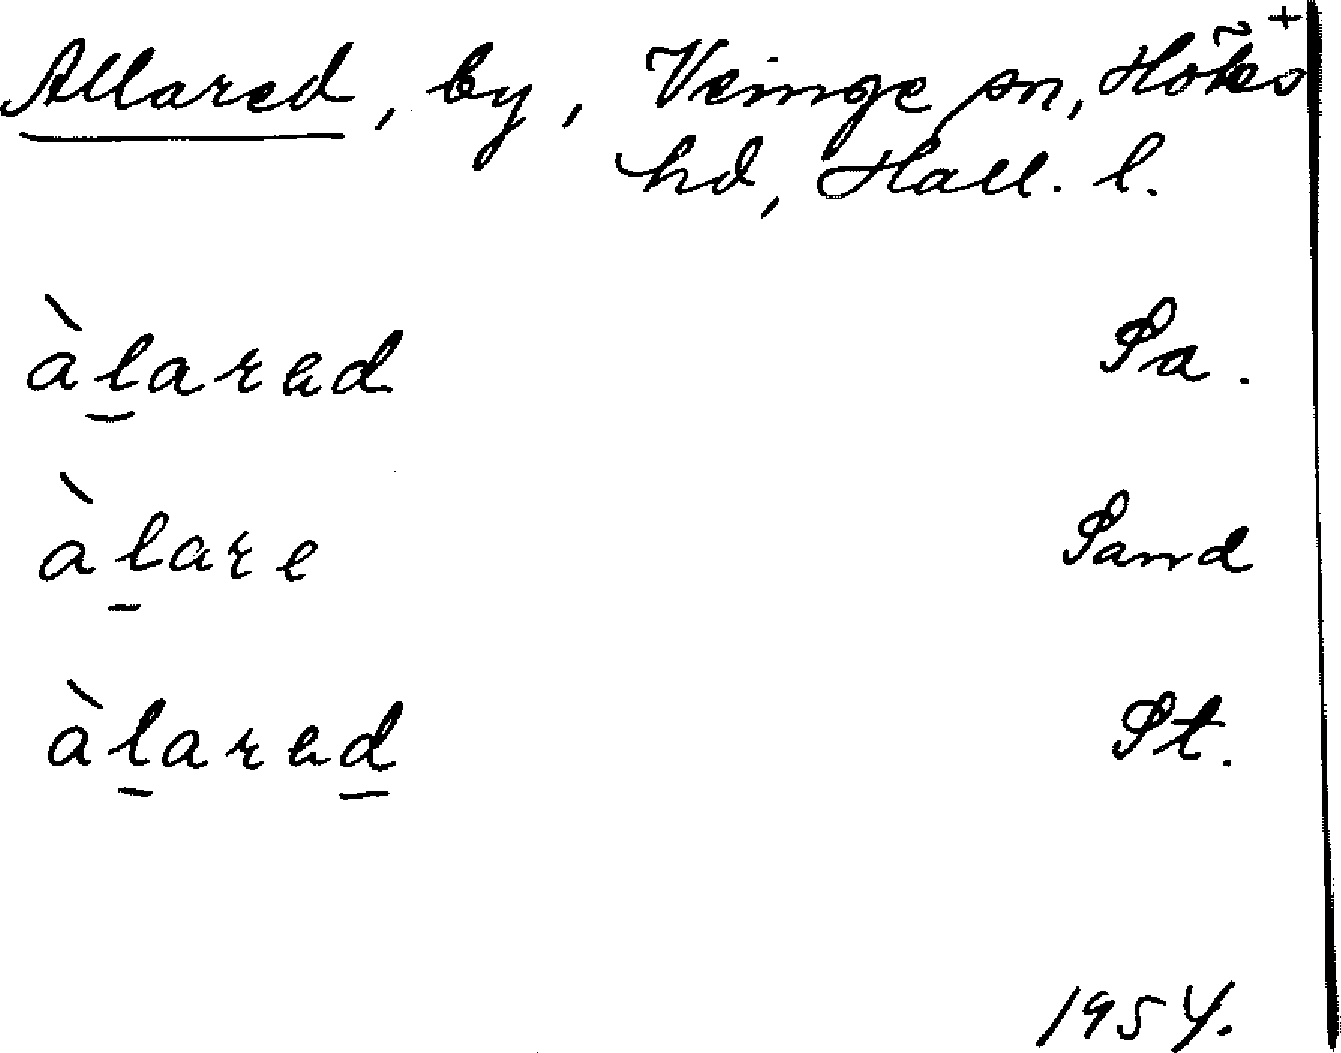 Allared, by, Veinge sn, Höks +
hd, Hall. l.
àlarad Sa.
àlare Sand
àlarad St.
1954.